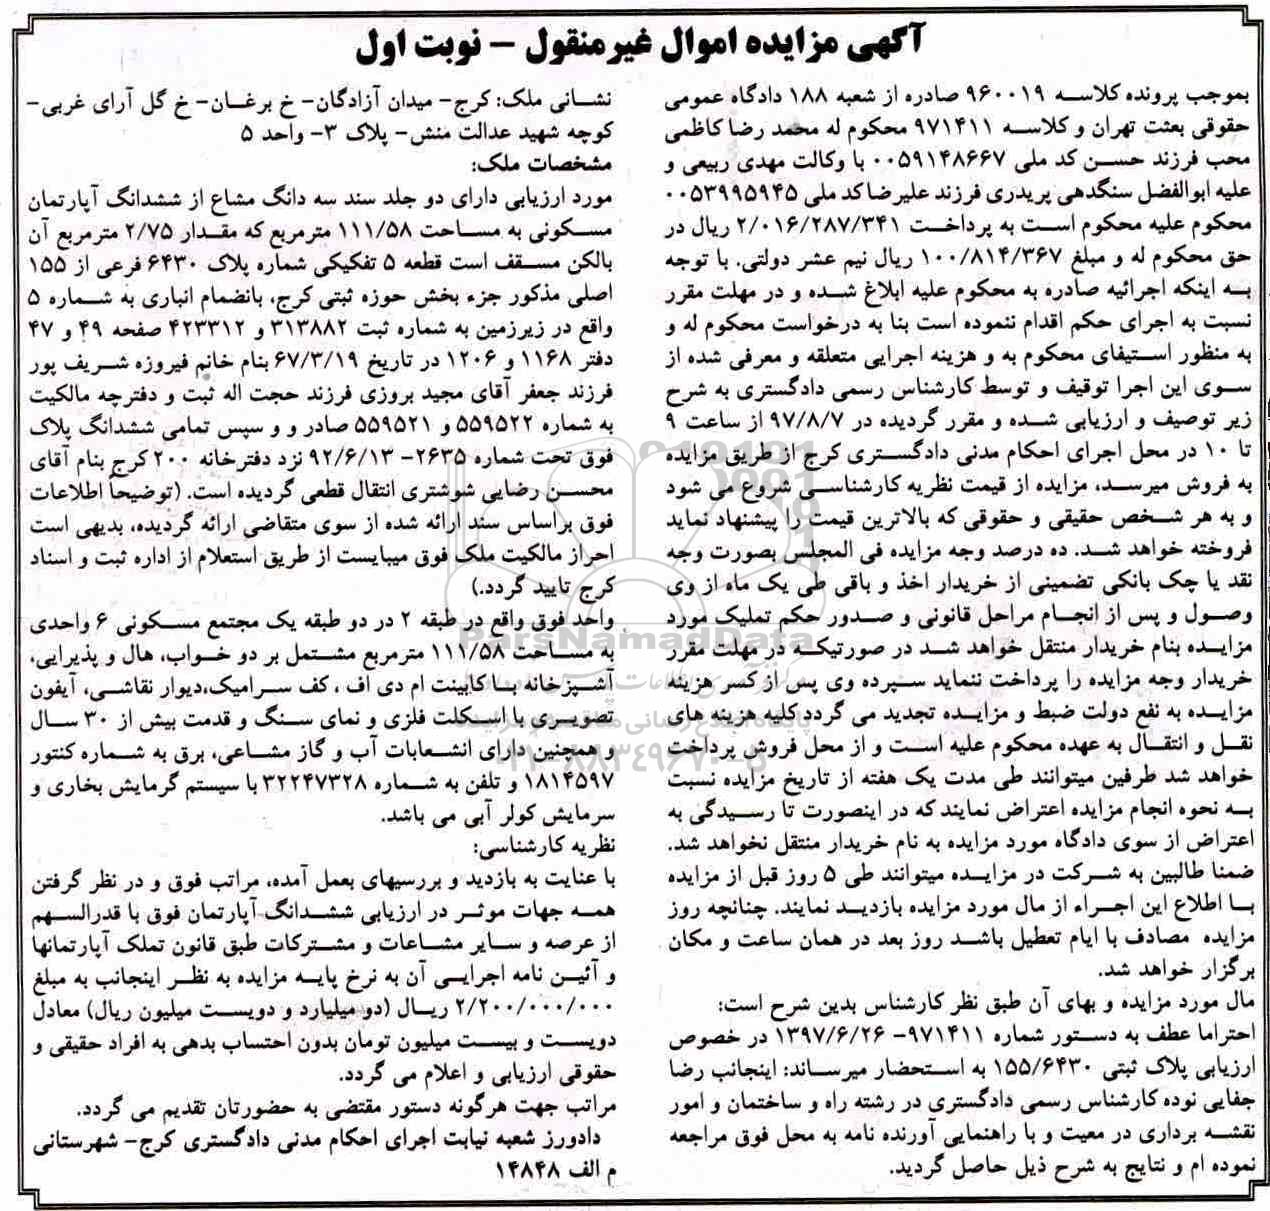 آگهی مزایده اموال غیرمنقول – نوبت اول
بموجب پرونده کلاسه ۹۶۰۰۱۹ صادره از شعبه ۱۸۸ دادگاه عمومی
حقوقی بعثت تهران و کلاسه ۹۷۱۴۱۱ محکوم له محمد رضا کاظمی
محب فرزند حسن کد ملی ۰۰۵۹۱۴۸۶۶۷ با وکالت مهدی ربیعی و
علیه ابوالفضل سنگدهی پریدری فرزند علیرضا کد ملی ۰۰۵۳۹۹۵۹۴۵
محکوم علیه محکوم است به پرداخت ۲/۰۱۶/۲۸۷/۳۴۱ ریال در
حق محکوم له و مبلغ ۱۰۰/۸۱۴/۳۶۷ ریال نیم عشر دولتی. با توجه
به اینکه اجرائیه صادره به محکوم علیه ابلاغ شده و در مهلت مقرر
نسبت به اجرای حکم اقدام ننموده است بنا به درخواست محکوم له و
به منظور استیفای محکوم به و هزینه اجرایی متعلقه و معرفی شده از
سوی این اجرا توقیف و توسط کارشناس رسمی دادگستری به شرح
زیر توصیف و ارزیابی شده و مقرر گردیده در ۹۷/۸/۷ از ساعت ۹
تا ۱۰ در محل اجرای احکام مدنی دادگستری کرج از طریق مزایده
به فروش میرسد، مزایده از قیمت نظریه کارشناسی شروع می شود
و به هر شخص حقیقی و حقوقی که بالاترین قیمت را پیشنهاد نماید
فروخته خواهد شد. ده درصد وجه مزایده فی المجلس بصورت وجه
نقد یا چک بانکی تضمینی از خریدار اخذ و باقی طی یک ماه از وی
وصول و پس از انجام مراحل قانونی و صدور حکم تملیک مورد
مزایده بنام خریدار منتقل خواهد شد در صورتیکه در مهلت مقرر
خریدار وجه مزایده را پرداخت ننماید سپرده وی پس از کسر هزینه
مزایده به نفع دولت ضبط و مزایده تجدید می گردد کلیه هزینه های
نقل و انتقال به عهده محکوم علیه است و از محل فروش پرداخت
خواهد شد طرفین میتوانند طی مدت یک هفته از تاریخ مزایده نسبت
به نحوه انجام مزایده اعتراض نمایند که در اینصورت تا رسیدگی به
اعتراض از سوی دادگاه مورد مزایده به نام خریدار منتقل نخواهد شد.
ضمنا طالبین به شرکت در مزایده میتوانند طی ۵ روز قبل از مزایده
با اطلاع این اجراء از مال مورد مزایده بازدید نمایند. چنانچه روز
مزایده مصادف با ایام تعطیل باشد روز بعد در همان ساعت و مکان
برگزار خواهد شد.
مال مورد مزایده و بهای آن طبق نظر کارشناس بدین شرح است:
احتراما عطف به دستور شماره ۹۷۱۴۱۱- ۱۳۹۷/۶/۲۶ در خصوص
ارزیابی پلاک ثبتی ۱۵۵/۶۴۳۰ به استحضار میرساند: اینجانب رضا
جفایی نوده کارشناس رسمی دادگستری در رشته راه و ساختمان و امور
نقشه برداری در معیت و با راهنمایی آورنده نامه به محل فوق مراجعه
نموده ام و نتایج به شرح ذیل حاصل گردید.
نشانی ملک: کرج- میدان آزادگان- خ برغان- خ گل آرای غربی-
کوچه شهید عدالت منش- پلاک ۳- واحد ۵
مشخصات ملک:
مورد ارزیابی دارای دو جلد سند سه دانگ مشاع از ششدانگ آپارتمان
مسکونی به مساحت ۱۱۱/۵۸ مترمربع که مقدار ۲/۷۵ مترمربع آن
بالکن مسقف است قطعه ۵ تفکیکی شماره پلاک ۶۴۳۰ فرعی از ۱۵۵
اصلی مذکور جزء بخش حوزه ثبتی کرج، بانضمام انباری به شماره ۵
واقع در زیرزمین به شماره ثبت ۳۱۳۸۸۲ و ۴۲۳۳۱۲ صفحه ۴۹ و ۴۷
دفتر ۱۱۶۸ و ۱۲۰۶ در تاریخ ۶۷/۳/۱۹ بنام خانم فیروزه شریف پور
فرزند جعفر آقای مجید بروزی فرزند حجت اله ثبت و دفترچه مالکیت
به شماره ۵۵۹۵۲۲ و ۵۵۹۵۲۱ صادر و و سپس تمامی ششدانگ پلاک
فوق تحت شماره ۲۶۳۵- ۹۲/۶/۱۳ نزد دفترخانه ۲۰۰ کرج بنام آقای
محسن رضایی شوشتری انتقال قطعی گردیده است. (توضیحاً اطلاعات
فوق براساس سند ارائه شده از سوی متقاضی ارائه گردیده، بدیهی است
احراز مالکیت ملک فوق میبایست از طریق استعلام از اداره ثبت و اسناد
کرج تایید گردد.)
واحد فوق واقع در طبقه ۲ در دو طبقه یک مجتمع مسکونی ۶ واحدی
به مساحت ۱۱۱/۵۸ مترمربع مشتمل بر دو خواب، هال و پذیرایی،
آشپزخانه با کابینت ام دی اف ، کف سرامیک،دیوار نقاشی، آیفون
تصویری با اسکلت فلزی و نمای سنگ و قدمت بیش از ۳۰ سال
و همچنین دارای انشعابات آب و گاز مشاعی، برق به شماره کنتور
۱۸۱۴۵۹۷ و تلفن به شماره ۳۲۲۴۷۳۲۸ با سیستم گرمایش بخاری و
سرمایش کولر آبی می باشد.
نظریه کارشناسی:
با عنایت به بازدید و بررسیهای بعمل آمده، مراتب فوق و در نظر گرفتن
همه جهات موثر در ارزیابی ششدانگ آپارتمان فوق با قدرالسهم
از عرصه و سایر مشاعات و مشترکات طبق قانون تملک آپارتمانها
و آئین نامه اجرایی آن به نرخ پایه مزایده به نظر اینجانب به مبلغ
۲/۲۰۰/۰۰۰/۰۰۰ ریال (دو میلیارد و دویست میلیون ریال) معادل
دویست و بیست میلیون تومان بدون احتساب بدهی به افراد حقیقی و
حقوقی ارزیابی و اعلام می گردد.
مراتب جهت هرگونه دستور مقتضی به حضورتان تقدیم می گردد.
دادورز شعبه نیابت اجرای احکام مدنی دادگستری کرج- شهرستانی
م الف ۱۴۸۴۸
ParsNamadData